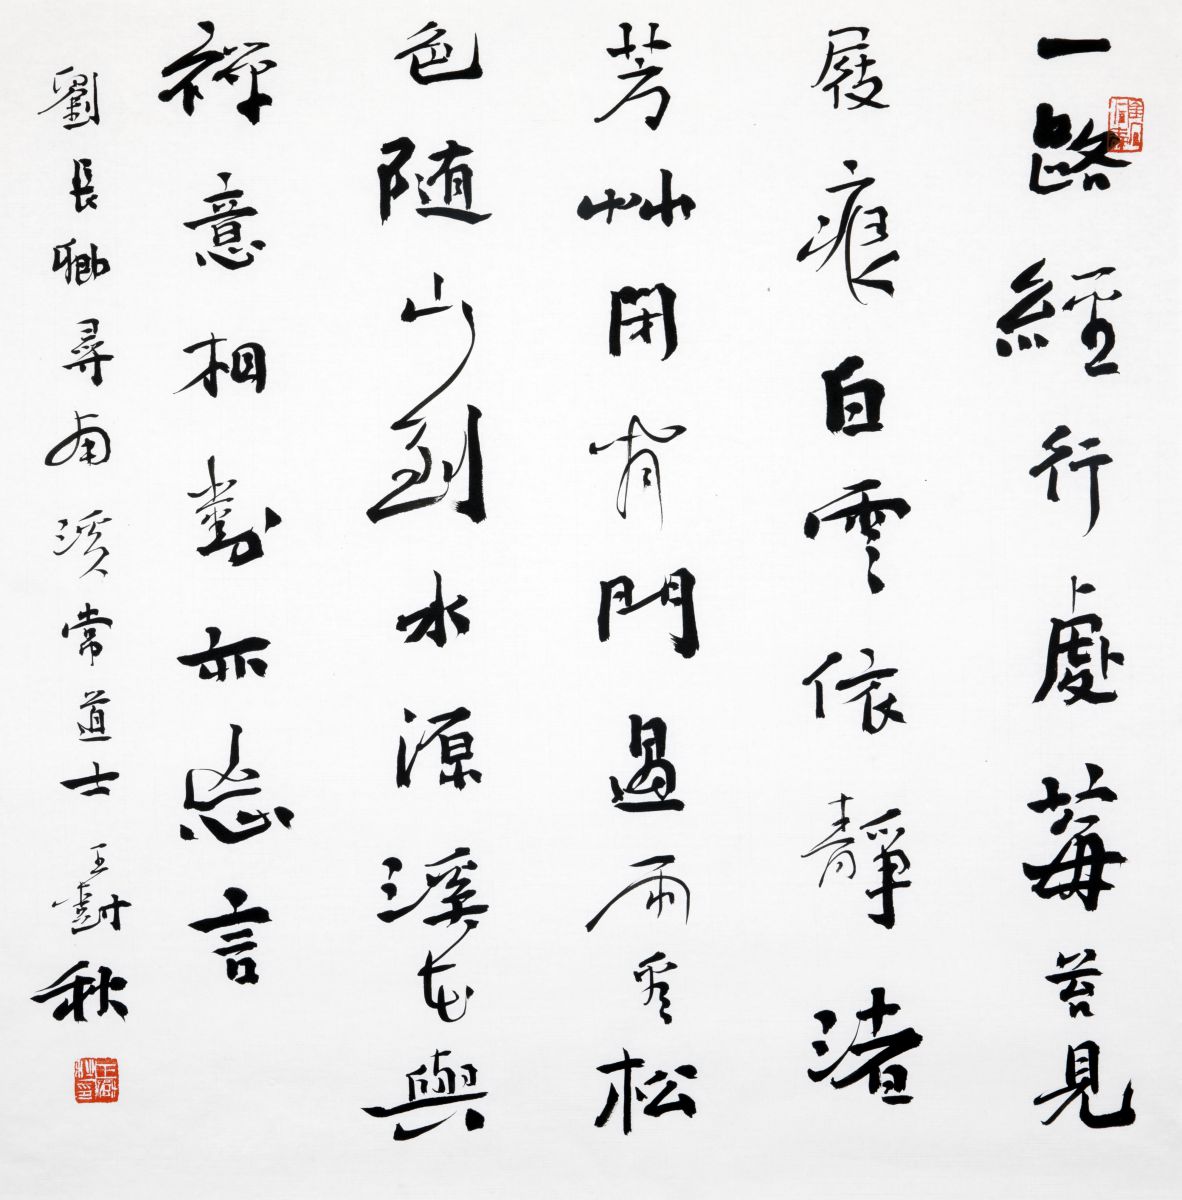 一路經行處莓苔見
屐痕白雲依靜渚
芳艸閉閒門過雨看松
色随山到水源溪花與
禪意相對亦忘言
劉長卿尋南溪常道士 王尌秋